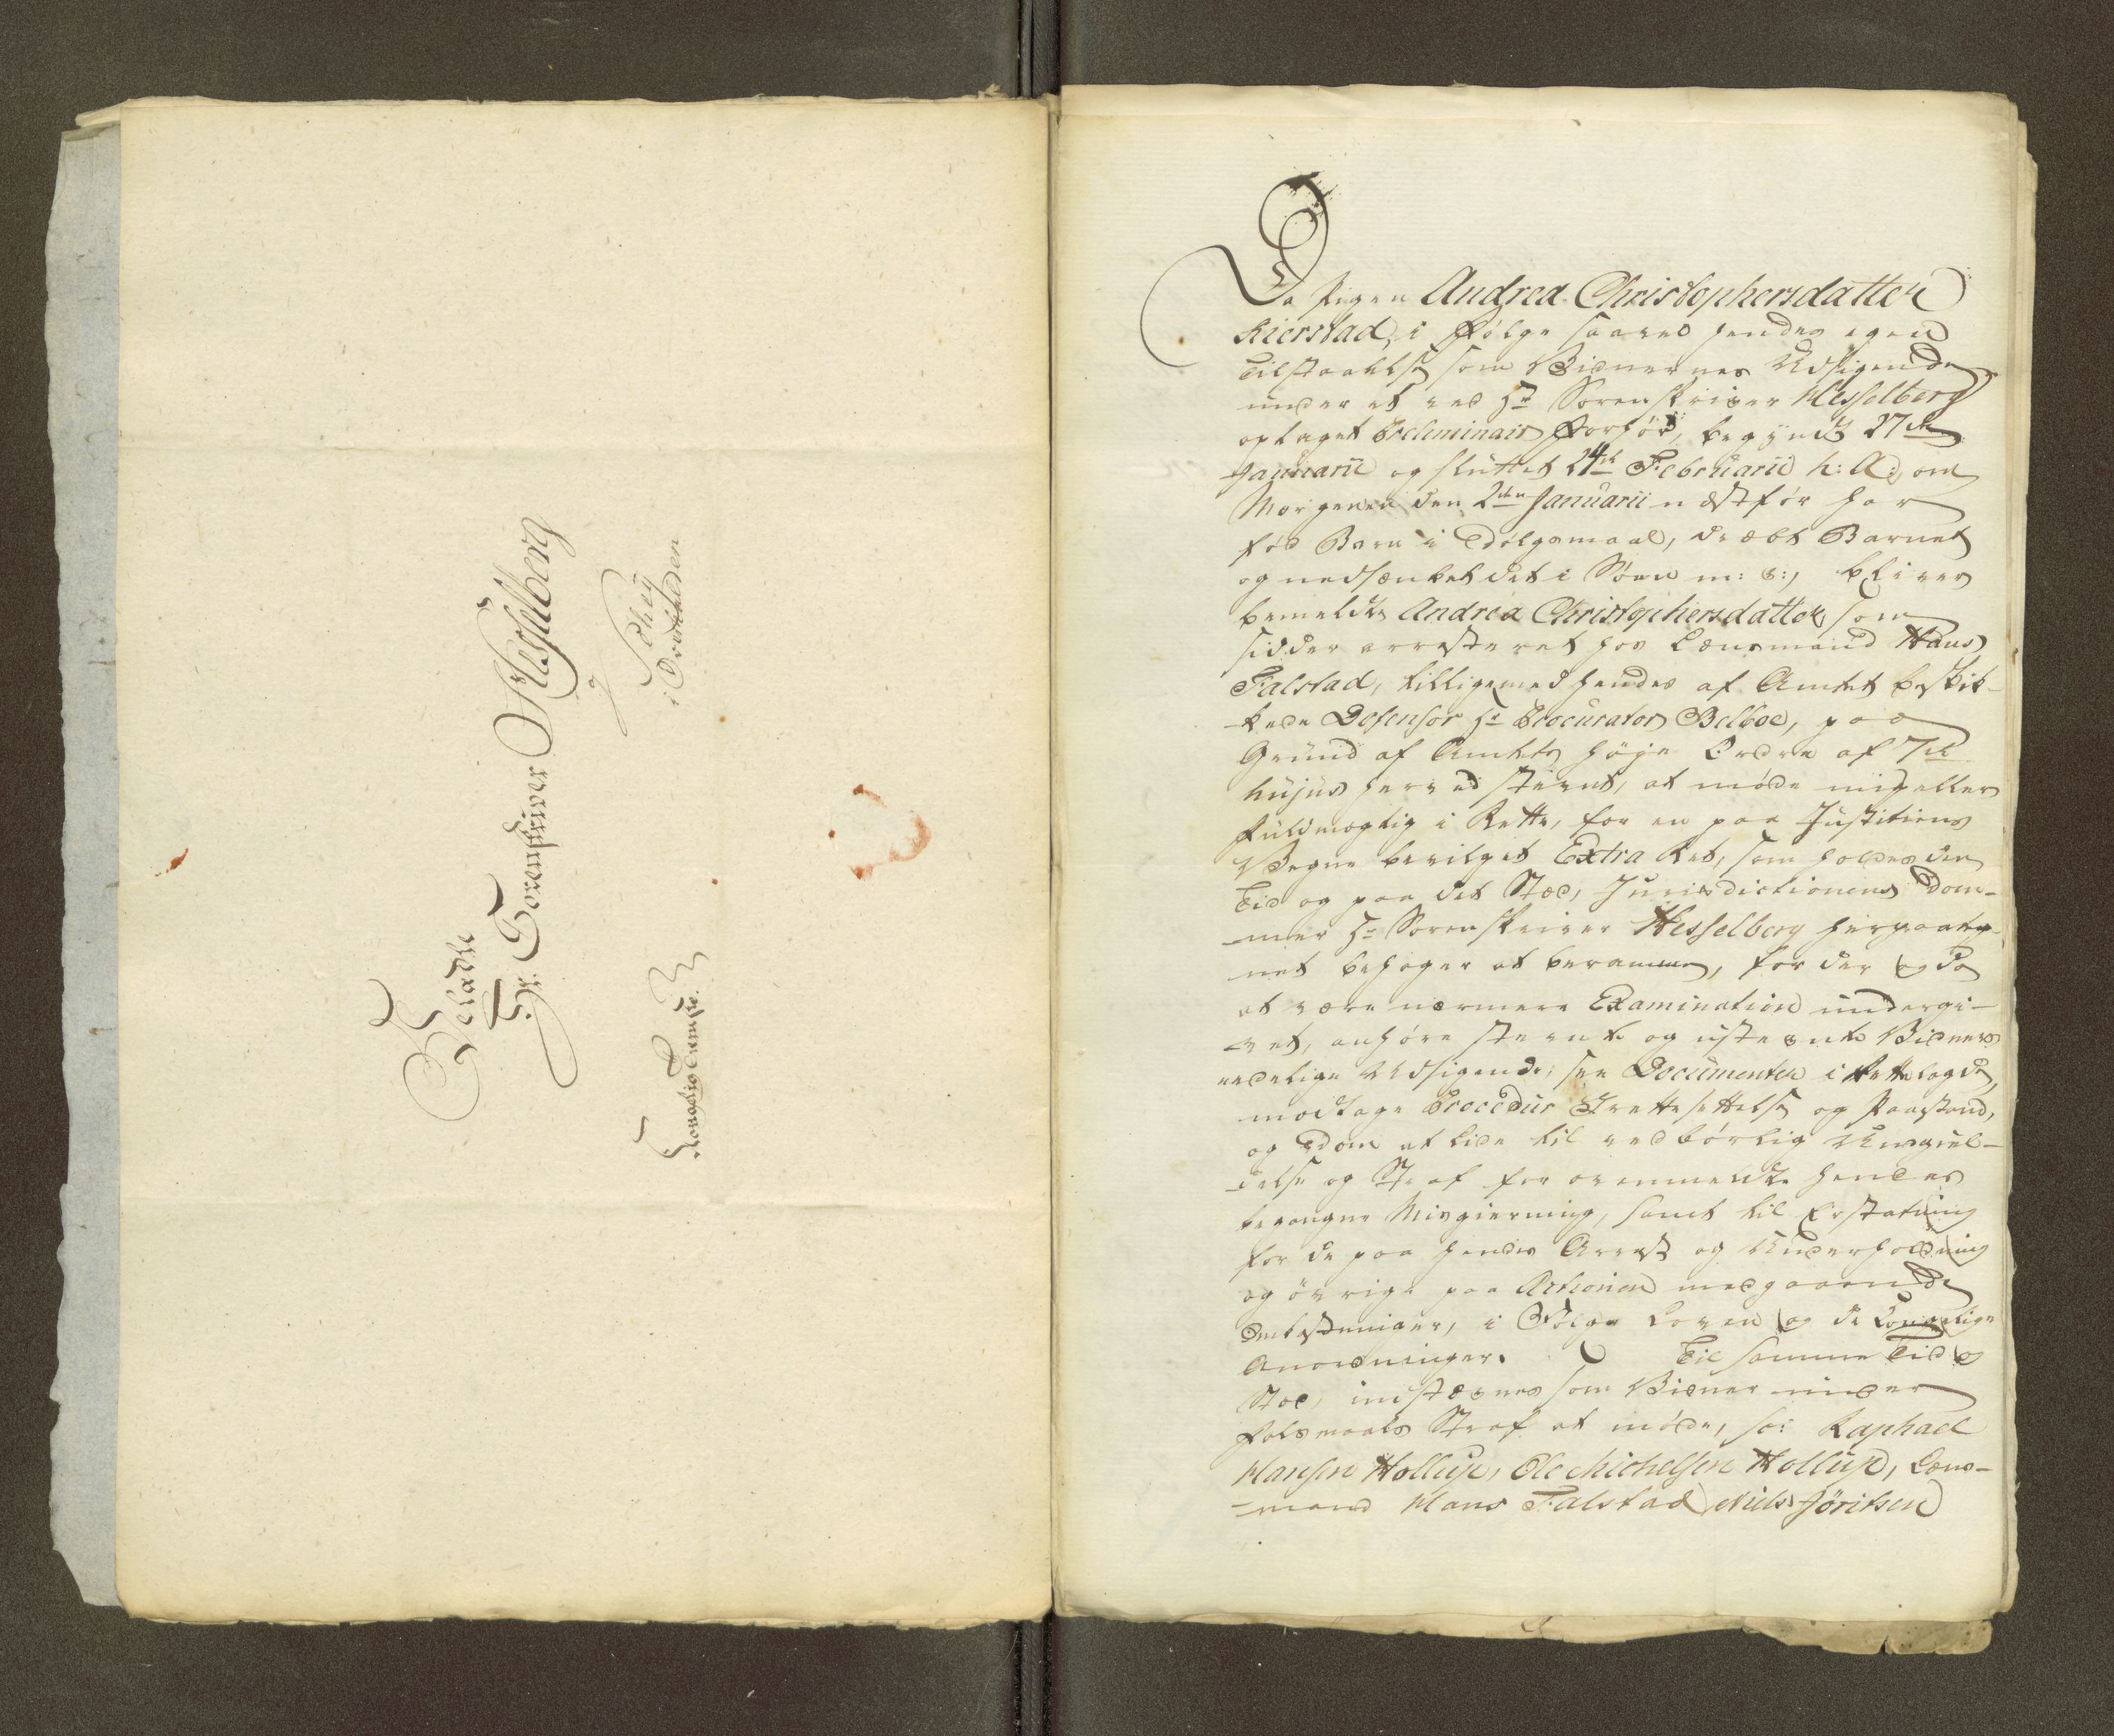 Velædle
Hr. Sorenskriver Hesselberg
Kongelig Tieneste.
Da Pigen Andrea Christophersdatter
Kierstad, i Følge saavel hendes egen
Tilstaaelse som Vidnernes Udsigende
under et ved Hr Sorenskriver Hesselberg
optaget Preliminair Forhør, begyndt 27de
Januarii og sluttet 24de Februarii h: A:, om
Morgenen den 2den Januarii næstfør har
fød Barn i Dølgsmaal, dræbt Barnet
og nedsænket det i Søen m: v:, bliver
bemeldte Andrea Christophersdatter, som
sidder arresteret hos Lænsmand Hans
Falstad, tilligemed hendes af Amtet beskik-
kede Defensor Hr Procurator Belboe, paa
Grund af Amtets høje Ordre af 7de
hujus herved stevnt, at møde mig eller
Fuldmægtig i Rette, for en paa Justitiens
Vegne bevilget Extra Ret, som holdes den
Tid og paa det Stæd, Jurisdictionens Dom-
mer Hr Sorenskriver Hesselberg herpaateg-
net behager at beramme, for der og da
at være nærmere Examination undergi-
vet, anhøre stevnte og ustevnte Vidners
eedelige Udsigende, see Documenter i Rettelagde,
modtage Procedur Irettesættelse og Paastand,
og Dom at lide til vedbørlig Undgiel-
delse og Straf for ovenmeldte hendes
begangne Misgierning, samt til Erstatning
for de paa hendes Arrest og Underholdning
og øvrige paa Actionen medgaaende
Omkostninger, i Følge Loven og de Kongelige
Anordninger. Til samme Tid og
Stæd, indstævnes som Vidner under
Falsmaals Straf at møde, so: Raphael
Hansen Hollup, Ole Michelsen Hollup, Læns-
mand Hans Falstad, Niels Jöritsen